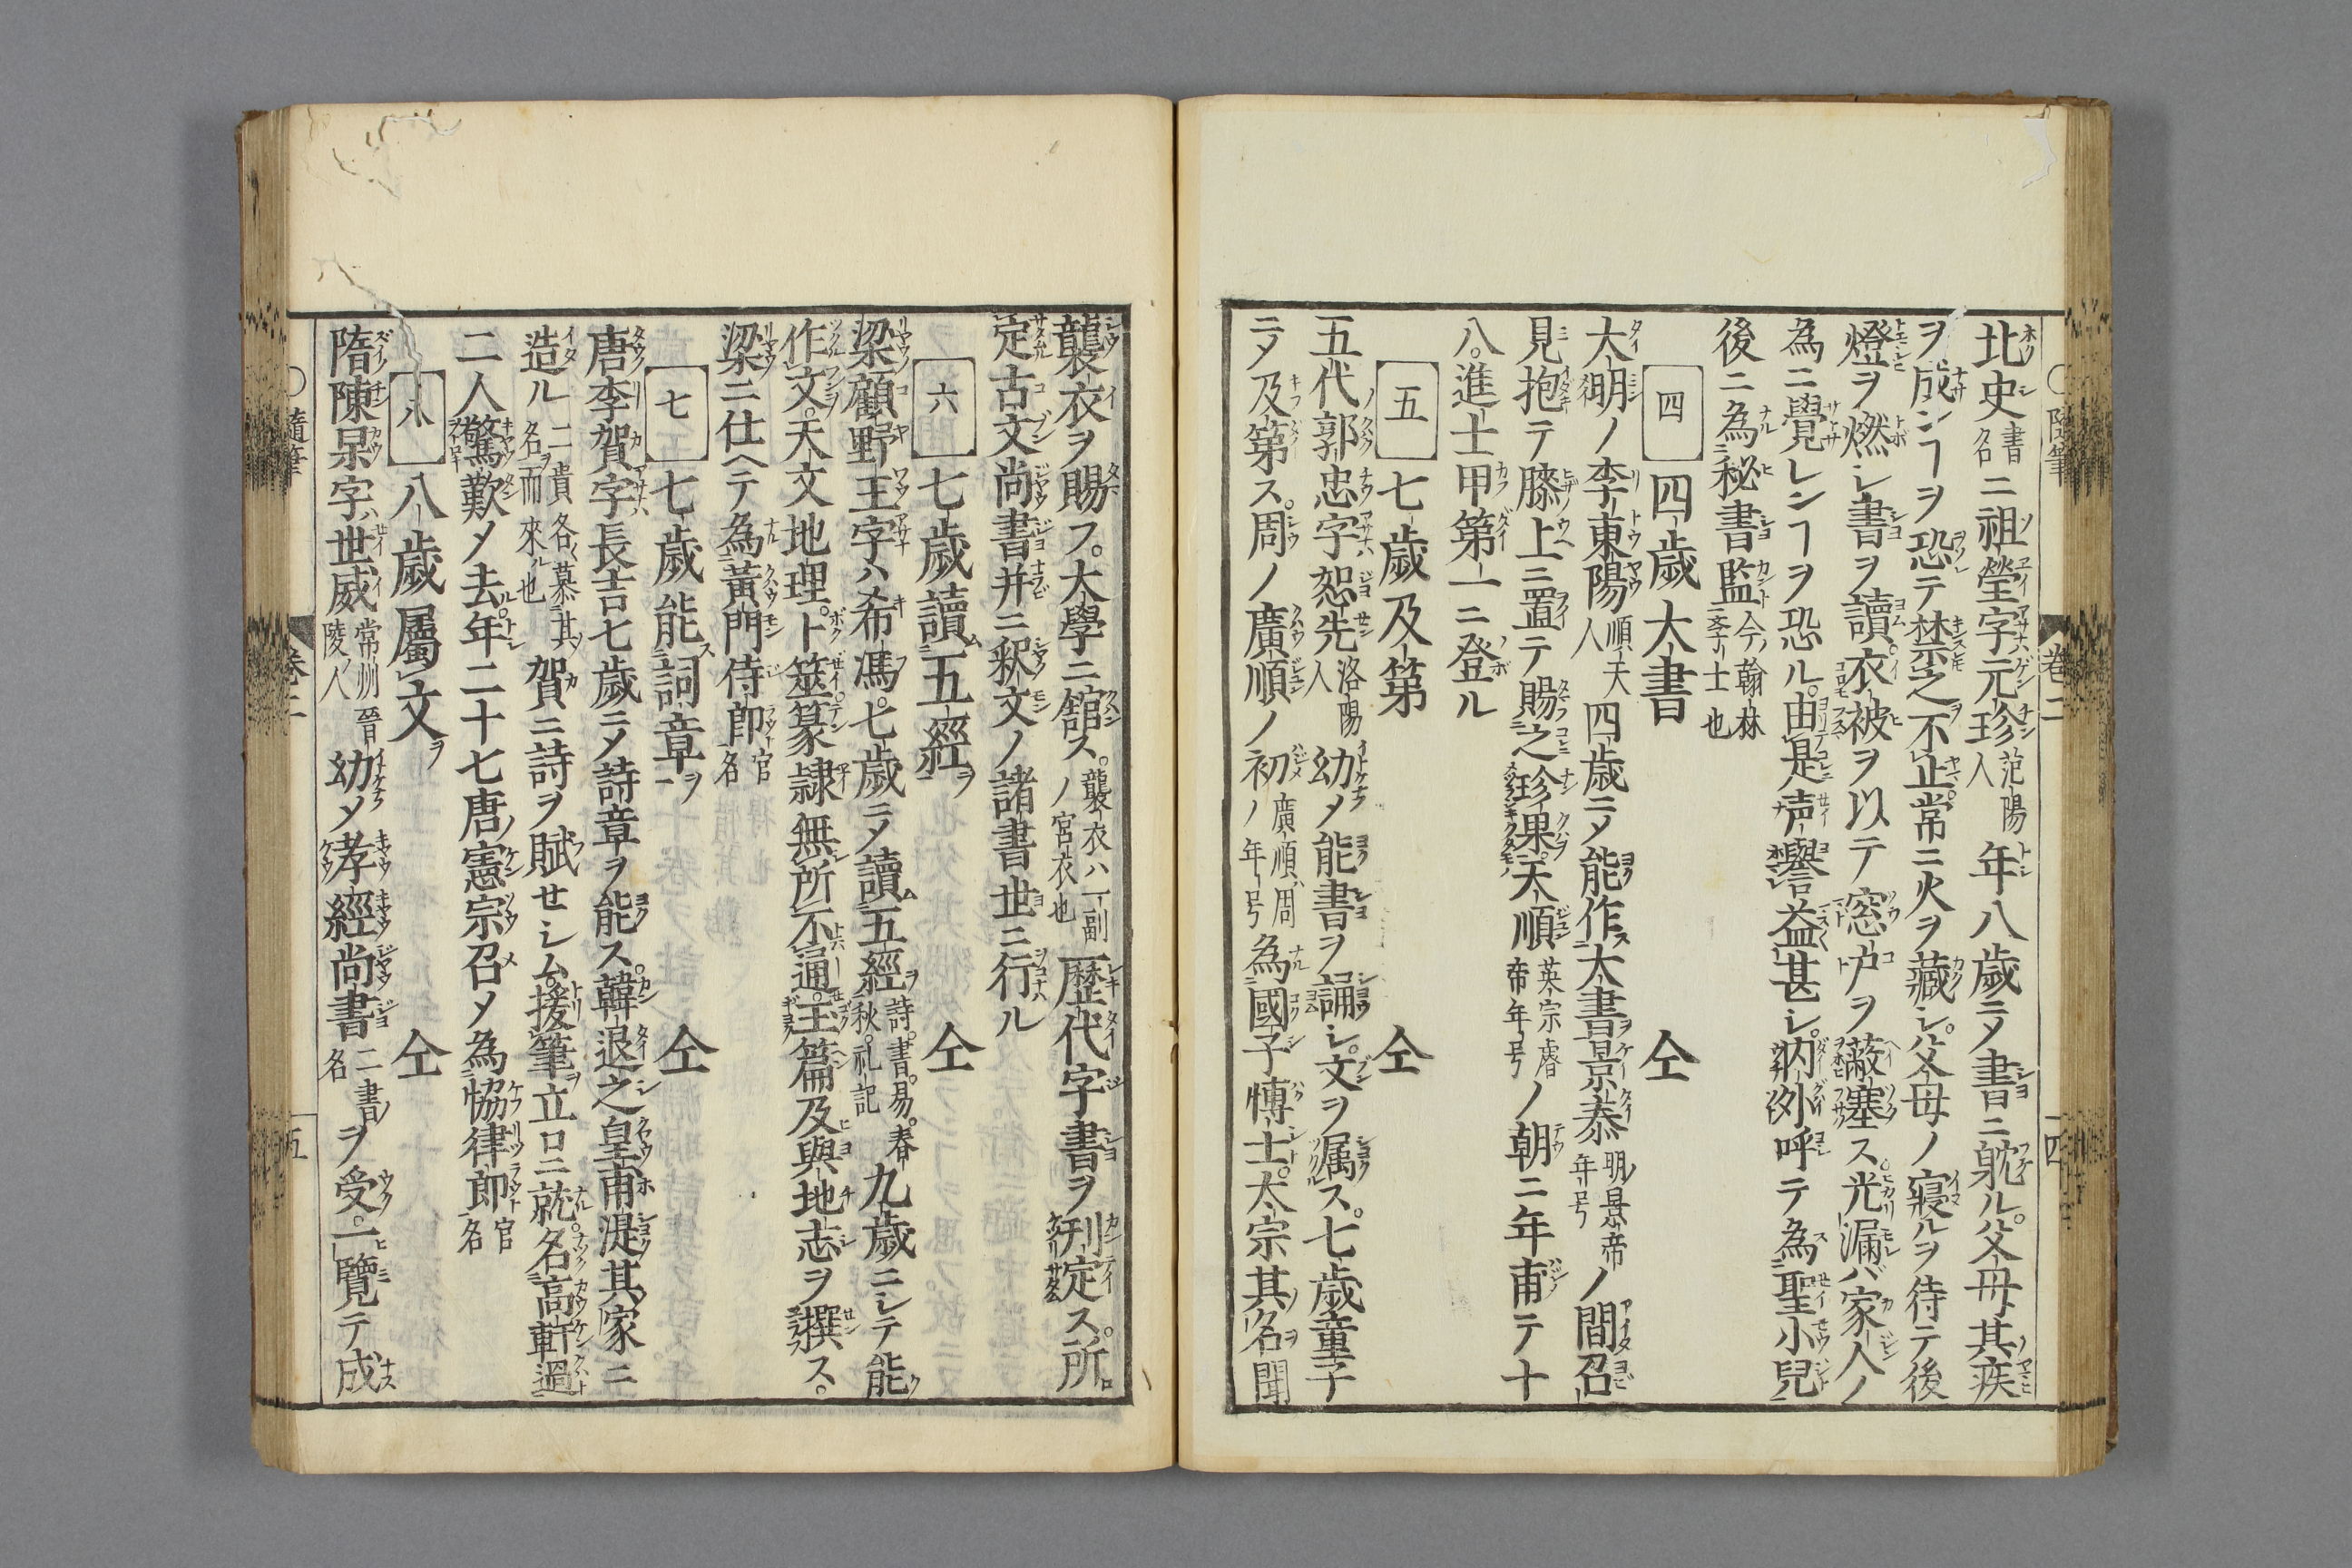 北史書名ニ祖瑩字元珍范陽人年八歳ニ〆書ニ躭ル。父母其疾
ヲ成ンヿヲ恐テ禁之不止常ニ火ヲ藏シ。父母ノ寢ルヲ待テ後
燈ヲ燃シ書ヲ讀。衣被ヲ以テ窓戸ヲ蔽塞ス。光漏バ家人ノ
為ニ覺レンヿヲ恐ル。由是声譽益甚シ。内外呼テ為聖小兒
後ニ為秘書監今ノ翰林学士也
四 四歳大書 仝
大明ノ李東陽順天人四歳ニ〆能作大書景泰明景帝年号ノ間召
見抱テ膝上ニ置テ賜之珍果。天順英宗睿帝年号ノ朝ニ年甫テ十
八。進士甲第一ニ登ル
五 七歳及第 仝
五代郭忠字恕先洛陽人幼〆能書ヲ誦シ。文ヲ属ス。七歳童子
ニ〆及第ス。周ノ廣順ノ初廣順ハ周ノ年号為國子博士。太宗其名聞
襲衣ヲ賜フ。大學ニ舘ス。襲衣ハ一副ノ宮衣也歴代字書ヲ刊定ス。所
定古文尚書并ニ釈文ノ諸書世ニ行ル
六 七歳讀五經ヲ 仝
梁顧野王字ハ希馮。七歳ニ〆讀五經ヲ詩。書。易。春秋。礼記九歳ニシテ能
作文。天文地理。卜筮篆隷無所不通。玉篇及與地志ヲ撰ス。
梁ニ仕ヘテ為黄門侍郎官名
七 七歳能詞章ヲ 仝
唐李賀字長吉七歳ニ〆詩章ヲ能ス。韓退之皇甫湜其家ニ
造ル二貴各〱慕其名ヲ而來ル也賀ニ詩ヲ賦セシム。援筆立ロニ就。名高軒過
二人驚歎〆去。年二十七唐ノ憲宗召〆為協律郎官名
八 八歳屬文ヲ 仝
隋陳杲字ハ世威常州晉陵人幼〆孝經尚書二書ノ名ヲ受。一覽テ成